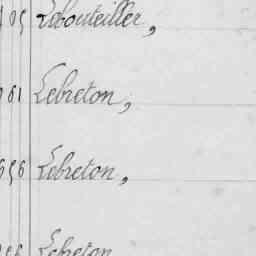 105 Lebouteiller,
961 Lebreton,
656 Lebreton,
Lebreton